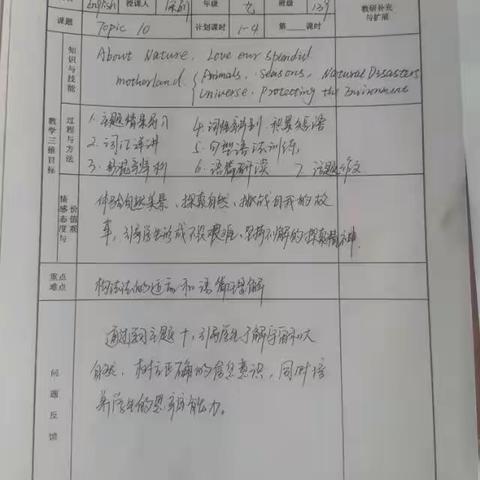 English 授课人 年级 九 班级 139
教研补充
与扩展
课题 Topic 10 计划课时 1-4 第 课时
教学三维目标
知识与技能
About Nature, Love our spendid
motherland. { Animals, seasons, Natural Disasters
Universe, Protecting the Environment
过程与方法
1.主题情景导入 4.词性辨别 积累短语
2.词汇详讲 5.句型语法训练
3. 6.语篇研读 7.话题作文
情感态度与价值观
体验自然美景、探索自然、挑战自我的故
事,引导学生形成不畏艰难、坚持不懈的探索精神.
重点
难点
构词法的运用和语篇理解
问题反馈
通过复习主题十,引导学生了解宇宙和大
自然、树立正确的信息意识,同时培
养学生的思维能力。